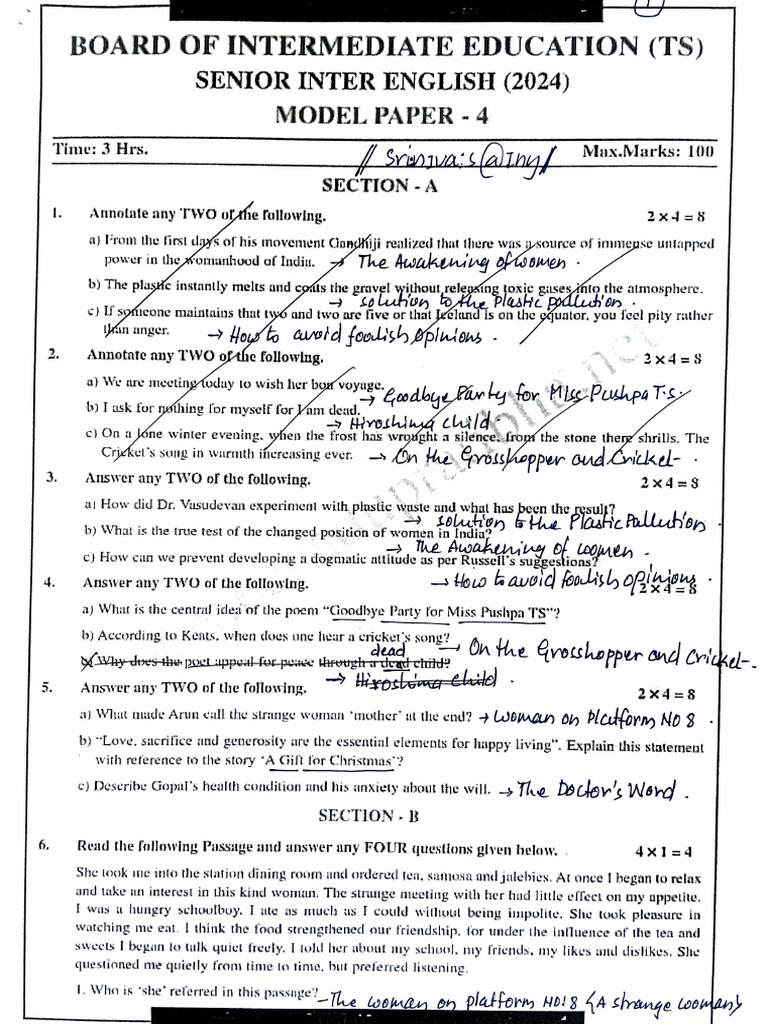 1
BOARD OF INTERMEDIATE EDUCATION (TS)
SENIOR INTER ENGLISH (2024)
MODEL PAPER - 4
Time: 3 Hrs. Max.Marks: 100
SECTION - A
1. Annotate any TWO of the following. 2 × 4 = 8
a) From the first days of his movement Gandhiji realized that there was a source of immense untapped
power in the womanhood of India. → The Awakening of women .
b) The plastic instantly melts and coats the gravel without releasing toxic gases into the atmosphere.
→ solution to the Plastic pollution .
c) If someone maintains that two and two are five or that Iceland is on the equator, you feel pity rather
than anger. → How to avoid foolish opinions .
2. Annotate any TWO of the following. 2 × 4 = 8
a) We are meeting today to wish her bon voyage. → Goodbye Party for Miss Pushpa T.S.
b) I ask for nothing for myself for I am dead. → Hiroshima child .
c) On a lone winter evening, when the frost has wrought a silence, from the stone there shrills. The
Cricket's song in warmth increasing ever. → On the Grosshopper and Cricket-
3. Answer any TWO of the following. 2 × 4 = 8
a) How did Dr. Vasudevan experiment with plastic waste and what has been the result?
→ solution to the Plastic Pallution .
b) What is the true test of the changed position of women in India?
→ The Awakening of women .
c) How can we prevent developing a dogmatic attitude as per Russell's suggestions?
→ How to avoid foolish opinions .
4. Answer any TWO of the following. 2 × 4 = 8
a) What is the central idea of the poem "Goodbye Party for Miss Pushpa TS"?
b) According to Keats, when does one hear a cricket's song?
→ On the Grosshopper and Cricket-.
dead
c) Why does the poet appeal for peace through a dead child?
→ Hiroshima child .
5. Answer any TWO of the following. 2 × 4 = 8
a) What made Arun call the strange woman 'mother' at the end? → woman on platform No 8 .
b) "Love, sacrifice and generosity are the essential elements for happy living". Explain this statement
with reference to the story 'A Gift for Christmas'?
c) Describe Gopal's health condition and his anxiety about the will. → The Doctor's Word .
SECTION - B
6. Read the following Passage and answer any FOUR questions given below. . 4 × 1 = 4
She took me into the station dining room and ordered tea, samosa and jalebies. At once I began to relax
and take an interest in this kind woman. The strange meeting with her had little effect on my appetite.
I was a hungry schoolboy, I ate as much as I could without being impolite. She took pleasure in
watching me eat. I think the food strengthened our friendship, for under the influence of the tea and
sweets I began to talk quiet freely. I told her about my school, my friends, my likes and dislikes. She
questioned me quietly from time to time, but preferred listening.
1. Who is 'she' referred in this passage? - The woman on platform NO: 8 {A strange woman}